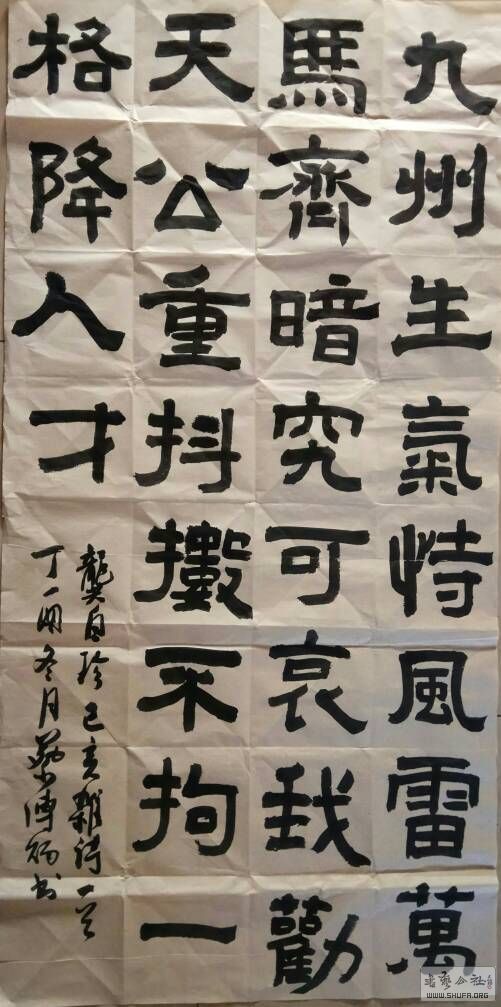 九州生氣恃風雷萬
馬齊暗究可哀我勸
天公重抖擻不拘一
格降人才
龔自珍己亥雜詩一首
丁酉冬月書
公社
WWW.SHUFA.ORG